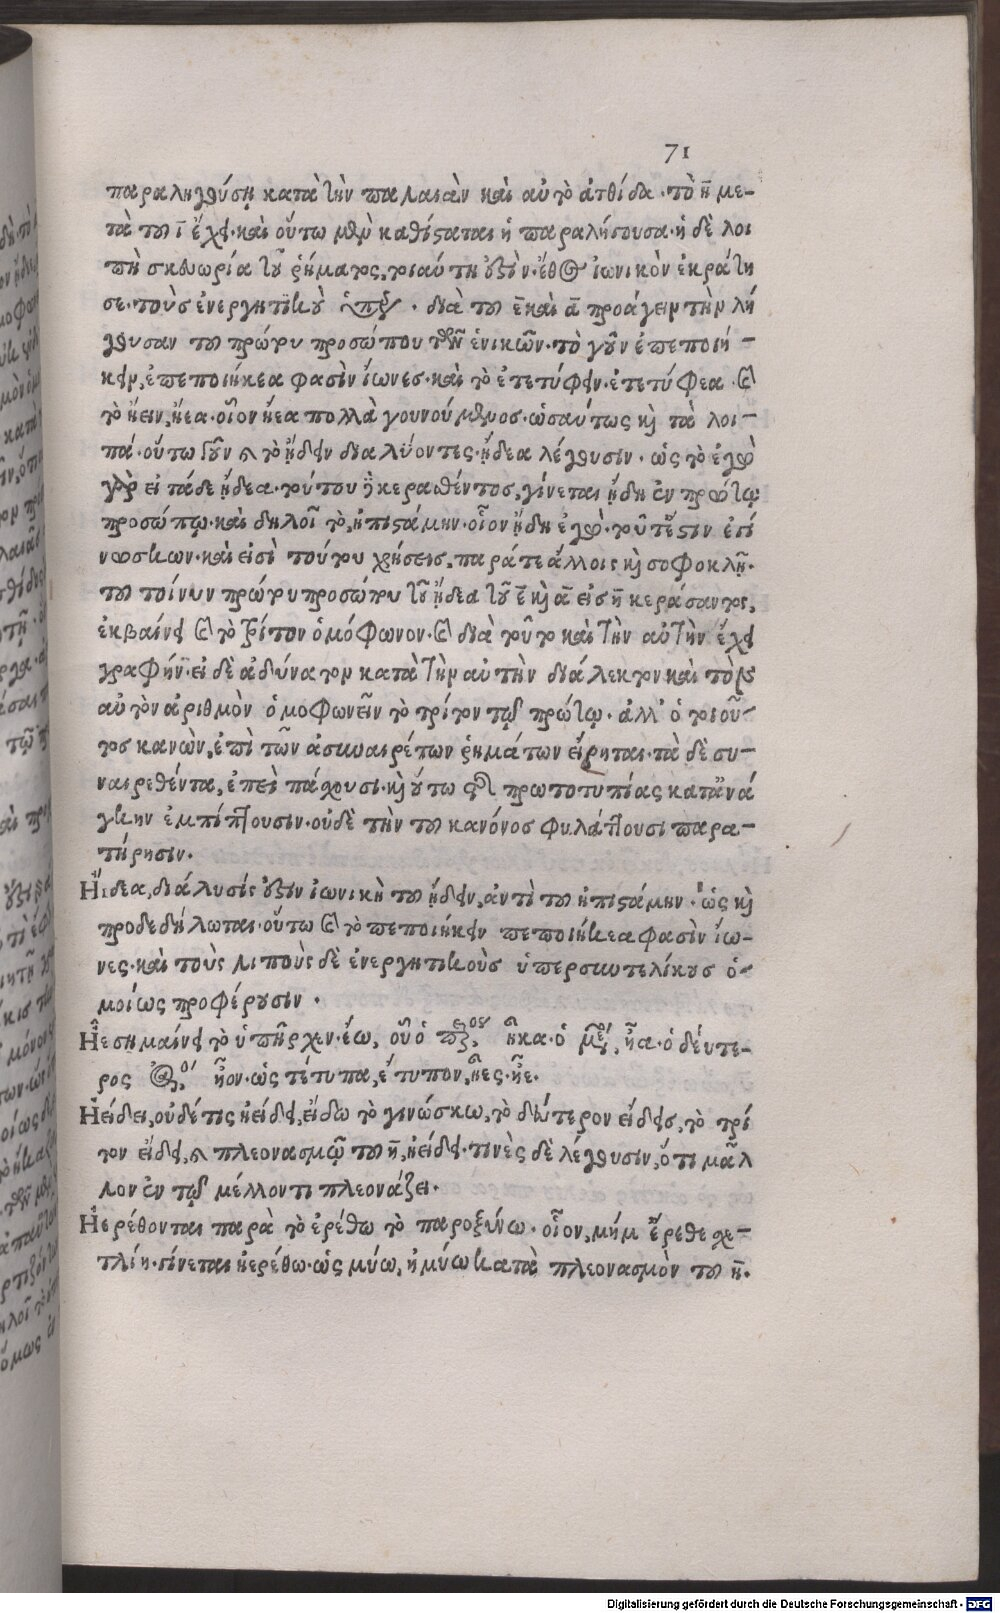 71
παραληγούση κατὰ τὴν παλαιὰν καὶ αὐτὸ ἀτθίδα. τὸ η̄ με-
τὰ τοῦ ῑ ἔχει. καὶ οὕτω μὲν καθίσταται ἡ παραλήγουσα. ἡ δὲ λοι
πὴ σκευωρία τοῦ ῥήματος, τοιαύτη ἐστὶν. ἔθος ἰωνικὸν ἐκράτη
σε. τοὺς ἐνεργητικοὺς διὰ τοῦ ε̄ καὶ ᾱ προάγειν τὴν λή
γουσαν τοῦ πρώτου προσώπου τῶν ἑνικῶν. τὸ γοῦν ἐπεποιή-
κειν, ἐπεποιήκεα φασὶν ἴωνες. καὶ τὸ ἐτετύφειν. ἐτετύφεα. καὶ
τὸ ἤειν, ἤεα. οἷον ἤεα πολλὰ γουνούμενος. ὡσαύτως καὶ τὰ λοι-
πά. οὕτω γοῦν καὶ τὸ ᾔδειν διαλύοντες. ᾔδεα λέγουσιν. ὡς τὸ ἐγὼ
γὰρ εἰ τάδε ᾔδεα. τούτου κεραθέντος, γίνεται ᾔδη ἐν πρώτῳ
προσώπῳ. καὶ δηλοῖ τὸ, ἠπιστάμην. οἷον ᾔδη ἐγὼ. τοῦτέστιν ἐγί
νωσκων. καὶ εἰσὶ τούτου χρήσεις, παρά τε ἄλλοις καὶ σοφοκλῇ.
τοῦ τοίνυν πρώτου προσώπου τοῦ ᾔδεα τοῦ ε̄ καὶ ᾱ εἰς η̄ κεράσαντος,
ἐκβαίνει καὶ τὸ τρίτον ὁμόφωνον. καὶ διὰ τοῦτο καὶ τὴν αὐτὴν ἔχει
γραφήν. εἰ δὲ ἀδύνατον κατὰ τὴν αὐτὴν διάλεκτον καὶ πρὸς
αὐτὸν ἀριθμὸν ὁμοφωνεῖν τὸ τρίτον τῷ πρώτῳ. ἀλλ' ὁ τοιοῦ-
τος κανὼν, ἐπὶ τῶν ἀσυναιρέτων ῥημάτων εἴρηται. τὰ δὲ συ-
ναιρεθέντα, ἐπεὶ πάσχουσι. καὶ οὕτω πρωτοτυπίας κατ' ἀνά
γκην ἐμπίπτουσιν. οὐδὲ τὴν τοῦ κανόνος φυλάττουσι παρα-
τήρησιν.
Ἤιδεα, διάλυσίς ἐστιν ἰωνικὴ τοῦ ᾔδειν, ἀντὶ τοῦ ἠπιστάμην. ὡς καὶ
προδεδήλωται. οὕτω καὶ τὸ πεποιήκειν πεποιήκεα φασὶν ἴω-
νες. καὶ τοὺς λιποὺς δὲ ἐνεργητικοὺς ὑπερσυντελίκους ὁ-
μοίως προφέρουσιν.
Ἦε σημαίνει τὸ ὑπῆρχεν. ἔω, οὗ ὁ ἦκα. ὁ ἦα. ὁ δεύτε-
ρος ἦον. ὡς τέτυπα, ἔτυπον, ἦες. ἦε.
Ἠείδει, οὐδέ τις ἠείδει, εἴδω τὸ γινώσκω, τὸ δεύτερον εἴδεις, τὸ τρί
τον εἴδει, καὶ πλεονασμῷ τοῦ η̄, ἠείδει. τινὲς δὲ λέγουσιν, ὅτι μᾶλ
λον ἐν τῷ μέλλοντι πλεονάζει.
Ἠερέθονται παρὰ τὸ ἐρέθω τὸ παροξύνω. οἷον, μήμ' ἔρεθε σχε-
τλίη. γίνεται ἠερέθω. ὡς μύω, ἠμύω κατὰ πλεονασμὸν τοῦ η̄.
Digitalisierung gefördert durch die Deutsche Forschungsgemeinschaft - DFG